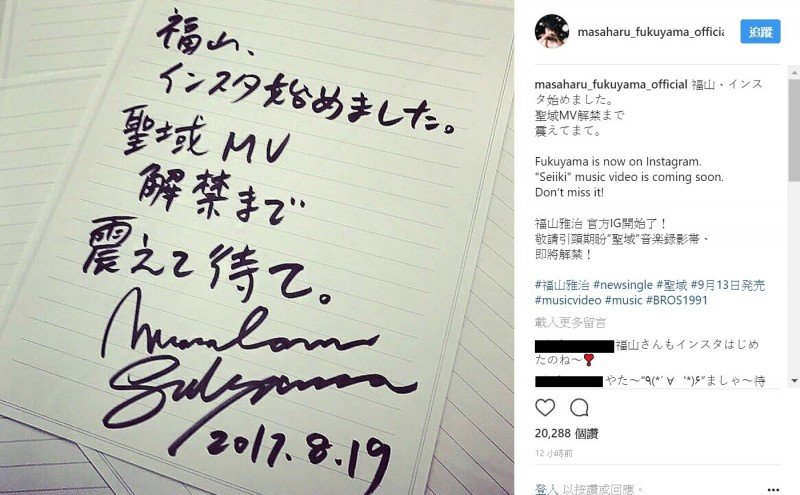 福山、
インスタ始めました。
聖域MV
解禁まで
震えて待て。
2017.8.19
masaharu_fukuyama_officia
追蹤
masaharu_fukuyama_official 福山、インス
タ始めました。
聖域MV解禁まで
震えてまて。
Fukuyama is now on Instagram.
"Seiiki" music video is coming soon.
Don't miss it!
福山雅治 官方IG開始了！
敬請引頸期盼"聖域"音楽録影帯、
即將解禁！
#福山雅治 #newsingle #聖域 #9月13日発売
#musicvideo #music #BROS1991
載入更多留言
福山さんもインスタはじめ
たのね～❣
やた～"٩(*´∀｀*)۶"ましゃ～待
20,288 個讚
12 小時前
登入 以按讚或回應。